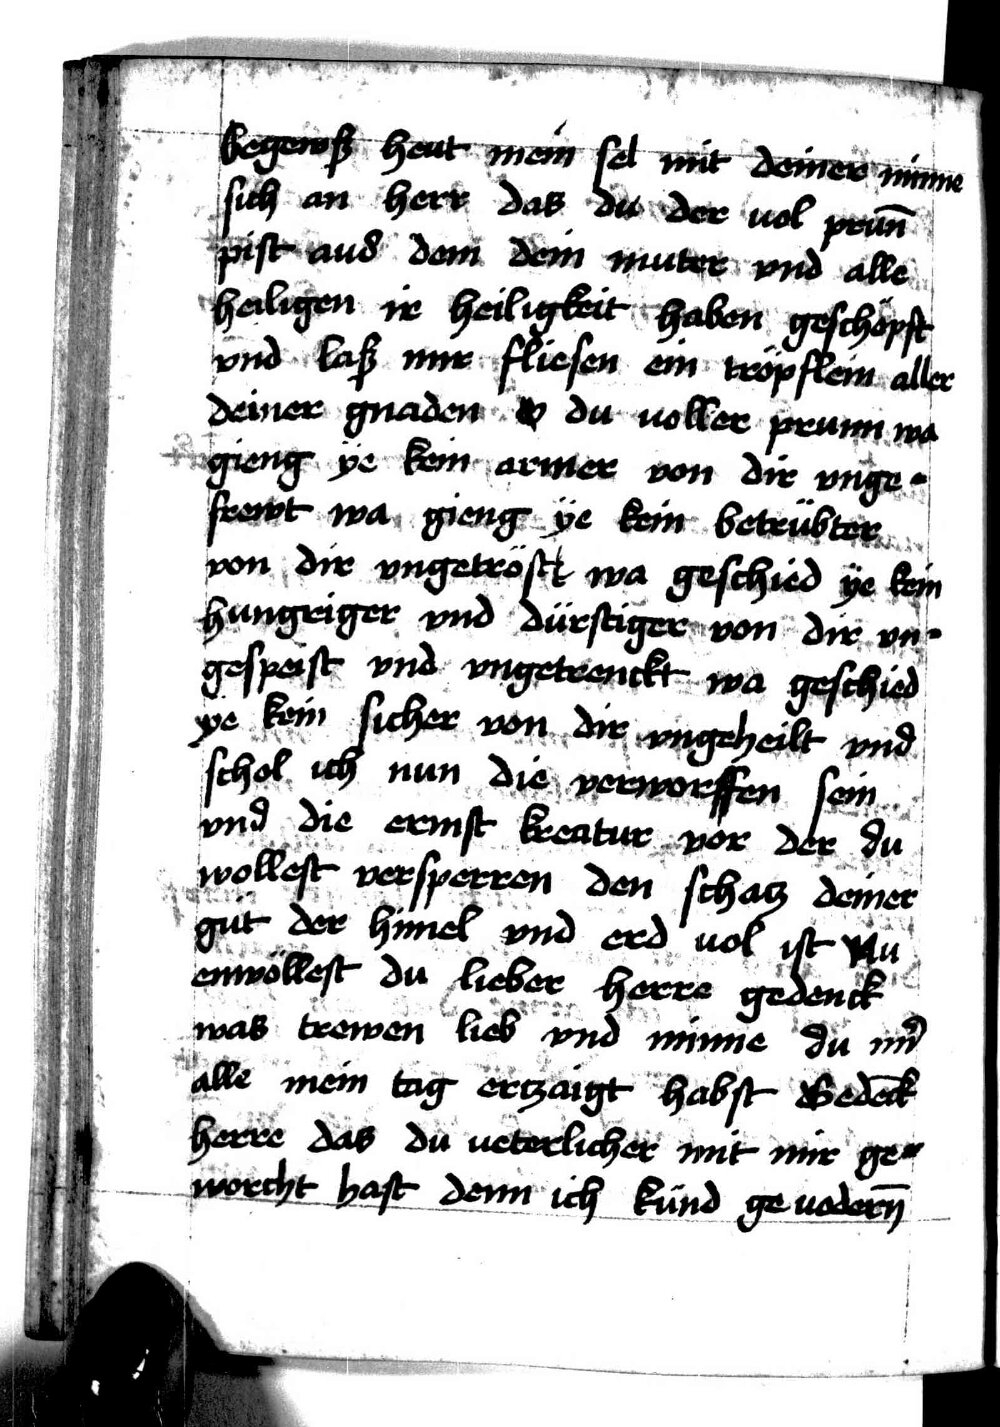 begewß heut mein sel mit deiner minne
sich an herr das du der uol prun̄
pist aus dem dein muter vnd alle
heiligen ir heiligkeit haben geschöpft
vnd laß mir fliesen ein tröpflein aller
deiner gnaden O du uoller prunn wa
gieng ye kein armer von dir vnge-
frewt wa gieng ÿe kein betrübter
von dir vngetröst wa geschied ÿe kein
hungriger vnd dürstiger von dir vn-
gespeist vnd vngetrenckt wa geschied
ye kein sicher von dir vngeheilt vnd
schol ich nun die verworffen sein
vnd die ermst kreatur vor der du
wollest versperren den schatz deiner
güt der himel vnd erd uol ist Nu
enwöllest du lieber herre gedenck
was trewen lieb vnd minne du mir
alle mein tag ertzaigt habst Gedēck
herre das du ueterlicher mit mir ge-
worcht hast denn ich künd ge uodern̄